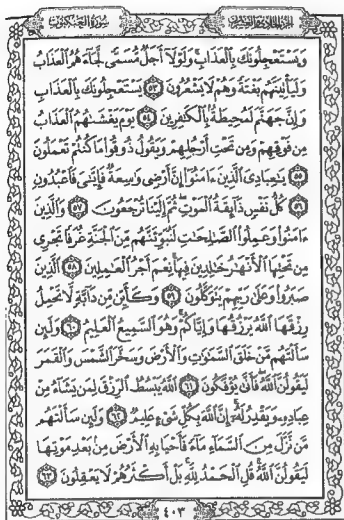 الجزء الحادي والعشرون
سورة العنكبوت
وَيَسْتَعْجِلُونَكَ بِالْعَذَابِ وَلَوْلَا أَجَلٌ مُسَمًّى لَجَاءَهُمُ الْعَذَابُ
وَلَيَأْتِيَنَّهُم بَغْتَةً وَهُمْ لَا يَشْعُرُونَ ٥٣ يَسْتَعْجِلُونَكَ بِالْعَذَابِ
وَإِنَّ جَهَنَّمَ لَمُحِيطَةٌ بِالْكَافِرِينَ ٥٤ يَوْمَ يَغْشَاهُمُ الْعَذَابُ
مِن فَوْقِهِمْ وَمِن تَحْتِ أَرْجُلِهِمْ وَيَقُولُ ذُوقُوا مَا كُنتُمْ تَعْمَلُونَ
٥٥ يَاعِبَادِيَ الَّذِينَ ءَامَنُوا إِنَّ أَرْضِي وَاسِعَةٌ فَإِيَّايَ فَاعْبُدُونِ
٥٦ كُلُّ نَفْسٍ ذَائِقَةُ الْمَوْتِ ثُمَّ إِلَيْنَا تُرْجَعُونَ ٥٧ وَالَّذِينَ
ءَامَنُوا وَعَمِلُوا الصَّالِحَاتِ لَنُبَوِّئَنَّهُم مِّنَ الْجَنَّةِ غُرَفًا تَجْرِي
مِن تَحْتِهَا الْأَنْهَارُ خَالِدِينَ فِيهَا نِعْمَ أَجْرُ الْعَامِلِينَ ٥٨ الَّذِينَ
صَبَرُوا وَعَلَى رَبِّهِمْ يَتَوَكَّلُونَ ٥٩ وَكَأَيِّن مِّن دَابَّةٍ لَّا تَحْمِلُ
رِزْقَهَا اللَّهُ يَرْزُقُهَا وَإِيَّاكُمْ وَهُوَ السَّمِيعُ الْعَلِيمُ ٦٠ وَلَئِن
سَأَلْتَهُم مَّنْ خَلَقَ السَّمَاوَاتِ وَالْأَرْضَ وَسَخَّرَ الشَّمْسَ وَالْقَمَرَ
لَيَقُولُنَّ اللَّهُ فَأَنَّى يُؤْفَكُونَ ٦١ اللَّهُ يَبْسُطُ الرِّزْقَ لِمَن يَشَاءُ مِنْ
عِبَادِهِ وَيَقْدِرُ لَهُ إِنَّ اللَّهَ بِكُلِّ شَيْءٍ عَلِيمٌ ٦٢ وَلَئِن سَأَلْتَهُم
مَّن نَّزَّلَ مِنَ السَّمَاءِ مَاءً فَأَحْيَا بِهِ الْأَرْضَ مِن بَعْدِ مَوْتِهَا
لَيَقُولُنَّ اللَّهُ قُلِ الْحَمْدُ لِلَّهِ بَلْ أَكْثَرُهُمْ لَا يَعْقِلُونَ ٦٣
٤٠٣